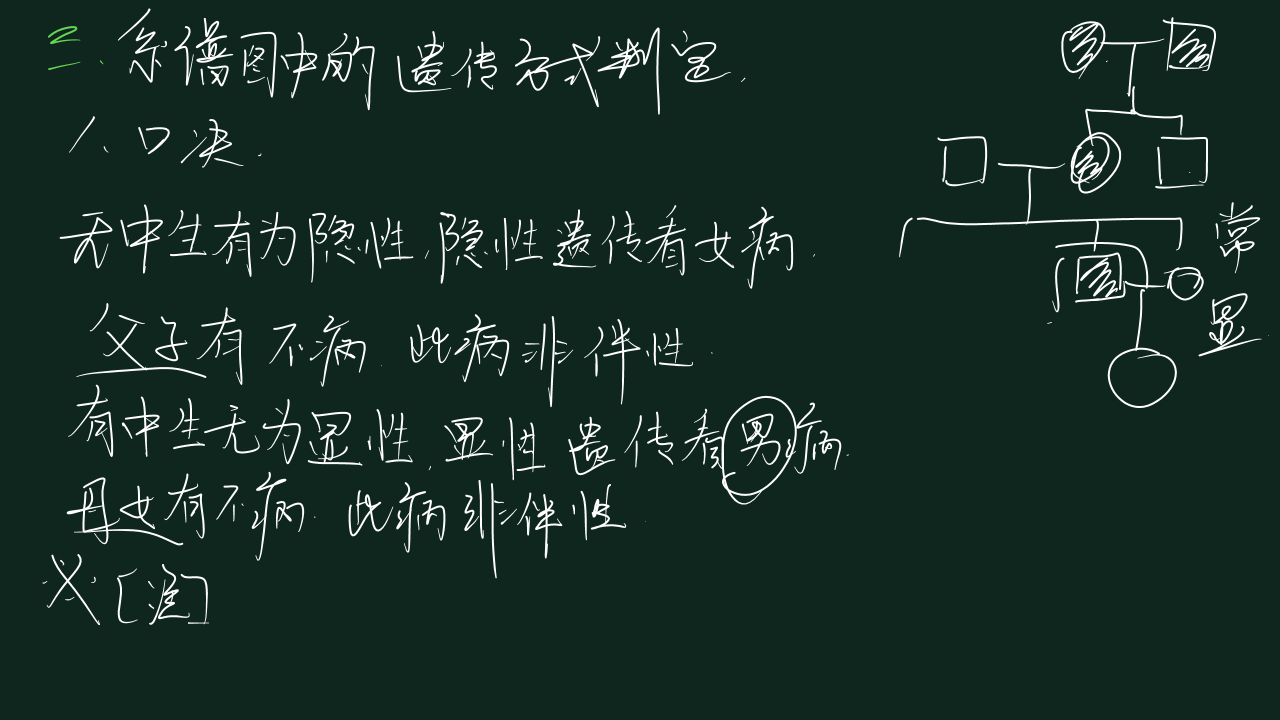 二. 系谱图中的遗传方式判定.
1、口决.
无中生有为隐性,隐性遗传看女病.
父子有不病.此病非伴性.
有中生无为显性,显性遗传看男病.
母女有不病.此病非伴性.
※[注]
常
显